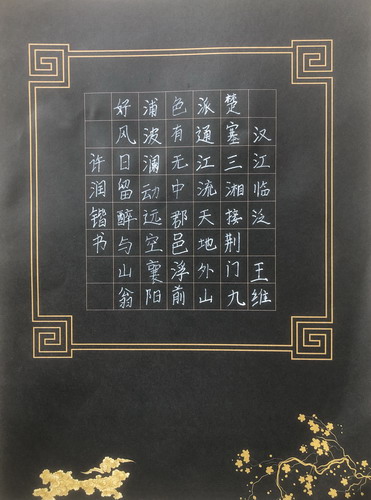 汉江临泛 王维
楚塞三湘接荆门九
派通江流天地外山
色有无中郡邑浮前
浦波澜动远空襄阳
好风日留醉与山翁
许润锴书